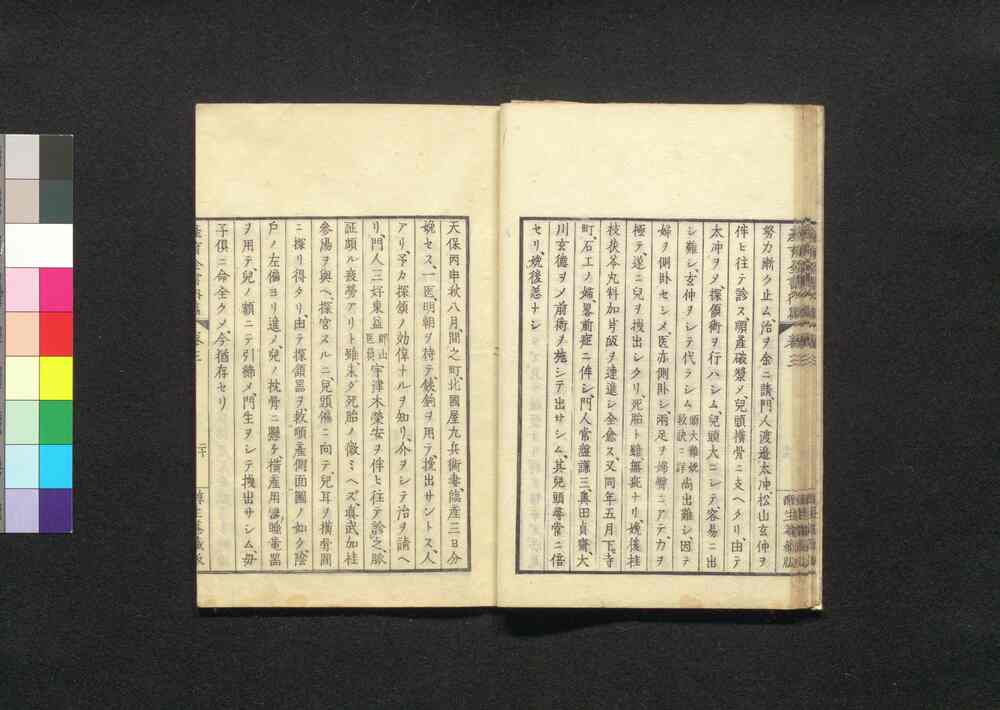 努力漸ク止ム、治ヲ余ニ請、門人渡邉太冲、松山玄仲ヲ
伴ヒ往テ診ス、順産破漿メ、兒頭横骨ニ支ヘタリ、由テ
太冲ヲメ、探頷術ヲ行ハシム、兒頭大ニシテ、容易ニ出
シ難シ、玄仲ヲシテ代ラシム 頭大難娩 尚出難シ、因テ
婦ヲ側卧セシメ、医亦側卧シ、兩足ヲ婦臀ニアテ、力ヲ
極テ、遂ニ兒ヲ挽出シタリ、死胎ト雖無恙ナリ、娩後桂
枝茯苓丸料加 ヲ連進シ全愈ス、又同年五月下、寺
町、石工ノ婦、畧前症ニ伴シ、門人 謙三、奥田貞齋、大
川玄德ヲメ前術ヲ施シテ出サシム、其兒頭尋常ニ倍
セリ、娩後恙ナシ
天保丙申秋八月、間之町、北國屋九兵衛妻、臨産三日分
娩セス、一医、明朝ヲ待テ、銕鉤ヲ用テ、挽出サントス、人
アリ、予カ探頷ノ効偉ナルヲ知リ、介ヲシテ治ヲ請ヘ
リ、門人三好東益 郡山医員 宇津木榮安ヲ伴ヒ往テ診之、脈
証頭ル疲勞アリト雖、未ダ死胎ノ徴ミヘズ、真武加桂
參湯ヲ與ヘ、探宮スルニ、兒頭偏ニ向テ、兒耳ヲ横骨間
ニ探リ得タリ、由テ探頷器ヲ 順産側面圖ノ如ク、陰
戸ノ左偏ヨリ進メ、兒ノ枕骨ニ懸ケ、横産用 睡 器
ヲ用テ、兒ノ額ニテ引絛メ、門生ヲシテ挽出サシム、毋
子倶ニ命全クメ、今猶存セリ
卷三